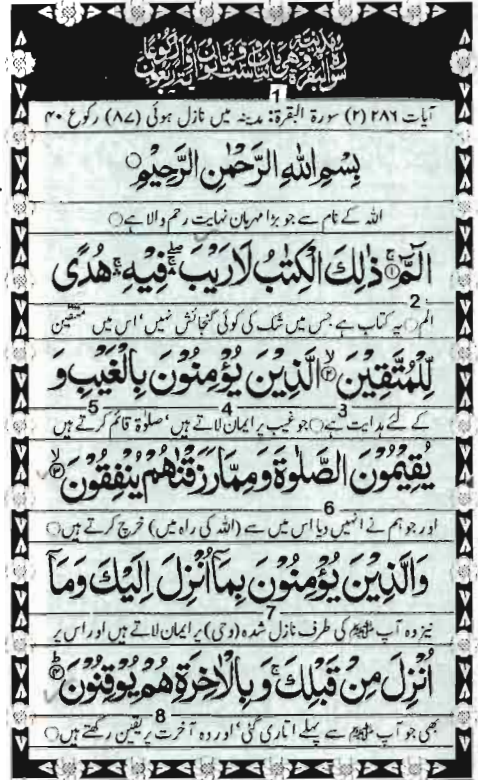 1
آیات ۲۸۶ (۲) سورة البقرة: مدینہ میں نازل ہوئی (۸۷) رکوع ۴۰
بِسْمِ اللهِ الرَّحْمٰنِ الرَّحِيْمِ
اللہ کے نام سے جو بڑا مہربان نہایت رحم والا ہے○
الٓمّٓ ۚ۝۱ ذٰلِكَ الْكِتٰبُ لَا رَيْبَ ۛۖ فِيْهِ ۛۚ هُدًى
2
الم○ یہ کتاب ہے جس میں شک کی کوئی گنجائش نہیں‘ اس میں متقین
لِّلْمُتَّقِيْنَ ۙ۝۲ الَّذِيْنَ يُؤْمِنُوْنَ بِالْغَيْبِ وَ
3 4 5
کے لئے ہدایت ہے○ جو غیب پر ایمان لاتے ہیں‘ صلوٰۃ قائم کرتے ہیں
يُقِيْمُوْنَ الصَّلٰوةَ وَمِمَّا رَزَقْنٰهُمْ يُنْفِقُوْنَ ۙ۝۳
6
اور جو ہم نے انہیں دیا اس میں سے (اللہ کی راہ میں) خرچ کرتے ہیں○
وَالَّذِيْنَ يُؤْمِنُوْنَ بِمَآ اُنْزِلَ اِلَيْكَ وَمَآ
7
نیز وہ آپ ﷺ کی طرف نازل شدہ (وحی) پر ایمان لاتے ہیں اور اس پر
اُنْزِلَ مِنْ قَبْلِكَ ۚ وَبِالْاٰخِرَةِ هُمْ يُوْقِنُوْنَ ۝۴
8
بھی جو آپ ﷺ سے پہلے اتاری گئی‘ اور وہ آخرت پر یقین رکھتے ہیں○